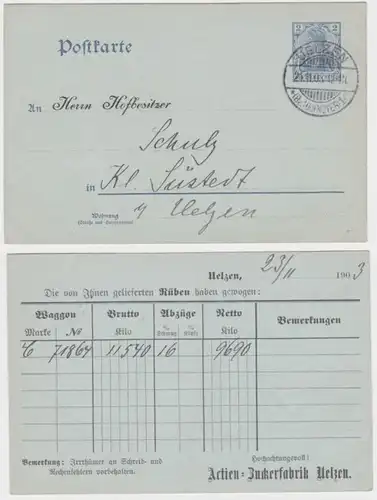 Postkarte
2 2
UELZEN
An Herrn Hofbesitzer
Schulz
in Kl. Süstedt
Wohnung
(Straße und Hausnummer)
b/ Uelzen
Uelzen, 23/11 1903
Die von Ihnen gelieferten Rüben haben gewogen:
Waggon Brutto Abzüge Netto Bemerkungen
Marke № Kilo % % Kilo
C 71864 11540 16 9690
Bemerkung: Irrthümer an Schreib- und
Rechenfehlern vorbehalten.
Hochachtungsvoll!
Actien-Zuckerfabrik Uelzen.